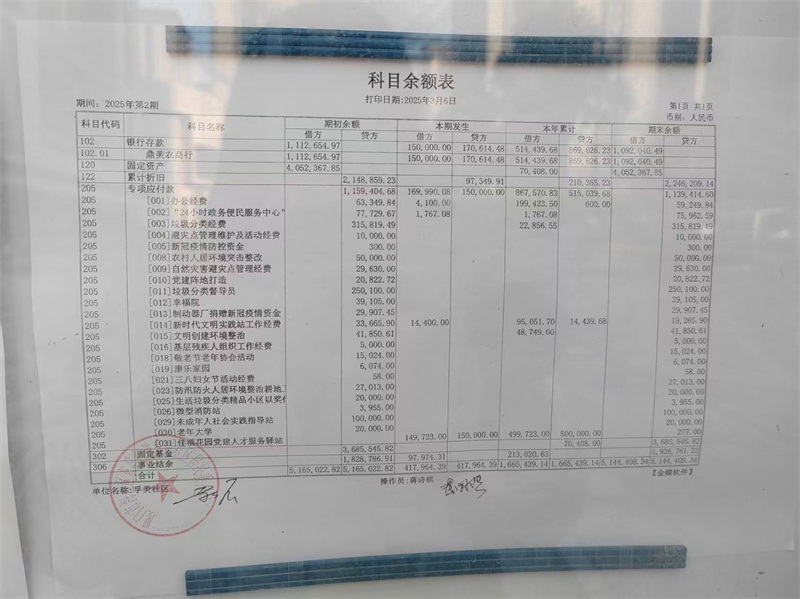 科目余额表
打印日期:2025年3月6日
期间: 2025年第2期 第1页 共1页
币别: 人民币
科目代码 科目名称 期初余额 本期发生 本年累计 期末余额
借方 贷方 借方 贷方 借方 贷方 借方 贷方
102 银行存款 1,112,654.97 150,000.00 170,614.48 514,439.68 869,626.23 1,092,040.49
102.01 鼎美农商行 1,112,654.97 150,000.00 170,614.48 514,439.68 869,626.23 1,092,040.49
120 固定资产 4,052,367.85 70,408.00 4,052,367.85
122 累计折旧 2,148,859.23 97,349.91 210,365.23 2,246,209.14
205 专项应付款 1,159,404.68 169,990.08 150,000.00 867,570.83 515,039.68 1,139,414.60
205 [001]办公经费 63,349.84 4,100.00 199,423.50 600.00 59,249.84
205 [002]“24小时政务便民服务中心” 77,729.67 1,767.08 1,767.08 75,962.59
205 [003]垃圾分类经费 315,819.49 22,856.55 315,819.49
205 [004]避灾点管理维护及活动经费 10,000.00 10,000.00
205 [005]新冠疫情防控资金 300.00 300.00
205 [008]农村人居环境突击整改 50,000.00 50,000.00
205 [009]自然灾害避灾点管理经费 29,630.00 29,630.00
205 [010]党建阵地打造 20,822.72 20,822.72
205 [011]垃圾分类督导员 250,100.00 250,100.00
205 [012]幸福院 39,105.00 39,105.00
205 [013]制动器厂捐赠新冠疫情资金 29,907.45 29,907.45
205 [014]新时代文明实践站工作经费 33,665.90 14,400.00 95,051.70 14,439.68 19,265.90
205 [015]文明创建环境整治 41,850.61 48,749.00 41,850.61
205 [016]基层残疾人组织工作经费 5,000.00 5,000.00
205 [018]敬老节老年协会活动 15,024.00 15,024.00
205 [019]康乐家园 6,074.00 6,074.00
205 [021]三八妇女节活动经费 58.00 58.00
205 [023]防汛防火人居环境整治耕地 27,013.00 27,013.00
205 [025]生活垃圾分类精品小区以奖 20,000.00 20,000.00
205 [026]微型消防站 3,955.00 3,955.00
205 [029]未成年人社会实践指导站 100,000.00 100,000.00
205 [030]老年大学 20,000.00 20,000.00
205 [031]佳福花园党建人才服务驿站 149,723.00 150,000.00 499,723.00 500,000.00 277.00
302 固定基金 3,685,545.82 70,408.00 3,685,545.82
306 事业结余 1,828,786.91 97,974.31 213,020.63 1,926,761.22
合计 5,165,022.82 5,165,022.82 417,964.39 417,964.39 1,665,439.14 1,665,439.14 5,144,408.34 5,144,408.34
单位名称:孚美社区 操作员:蒋诗祺 【金蝶软件】